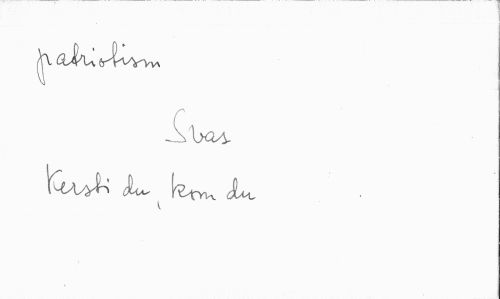 patriotism
Svas
Kersti du, kom du